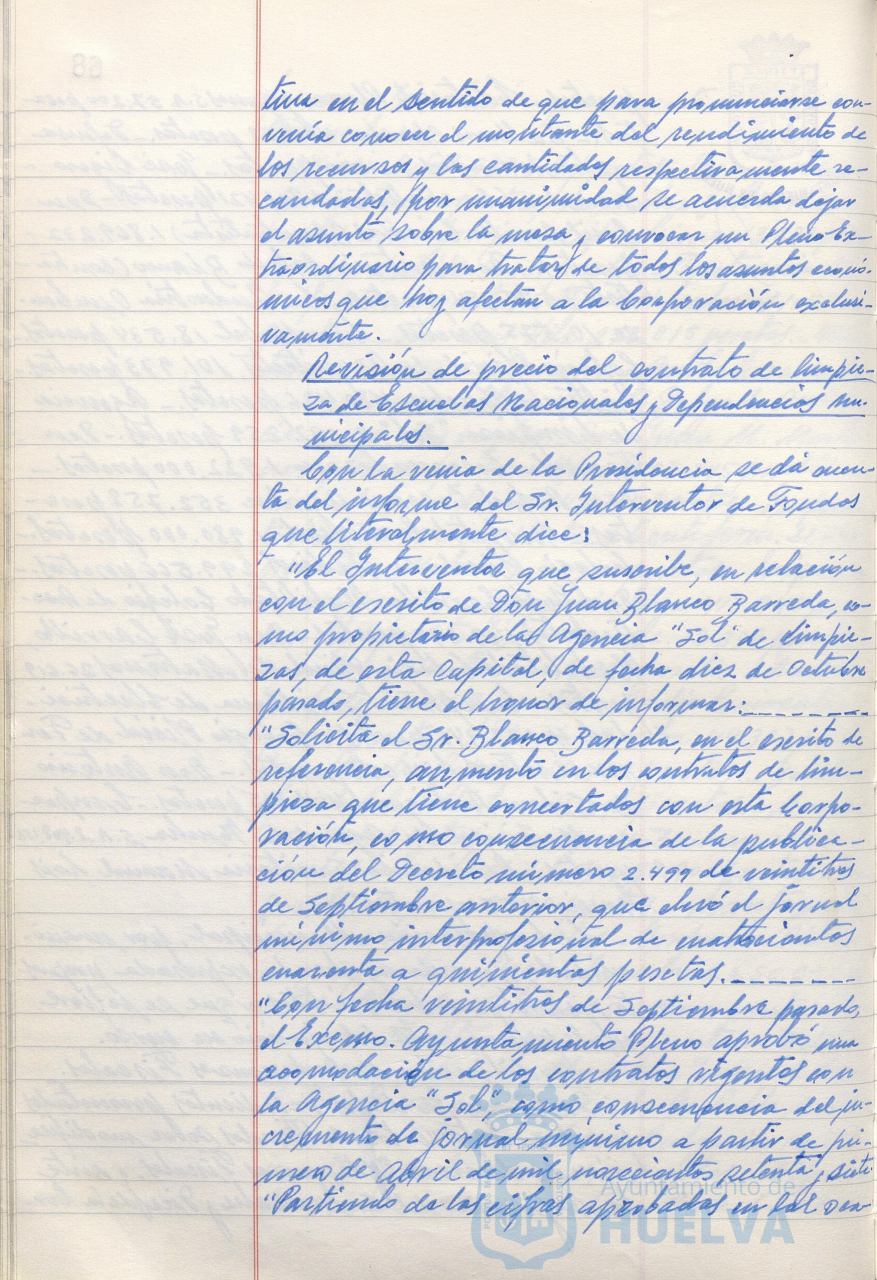 tiva en el sentido de que para pronunciarse con-
venía conocer el montante del rendimiento de
los recursos y las cantidades respectivamente re-
caudadas, por unanimidad se acuerda dejar
el asunto sobre la mesa y convocar un Pleno Ex-
traordinario para tratar de todos los asuntos econó-
micos que hoy afectan a la Corporación exclusi-
vamente.
Revisión de precio del contrato de limpie-
za de Escuelas Nacionales y Dependencias mu-
nicipales.
Con la venia de la Presidencia se dá cuen-
ta del informe del Sr. Interventor de Fondos
que literalmente dice:
"El Interventor que suscribe, en relación
con el escrito de Don Juan Blanco Barreda, co-
mo propietario de la Agencia "Sol" de limpie-
zas, de esta Capital, de fecha diez de Octubre
pasado, tiene el honor de informar:
"Solicita el Sr. Blanco Barreda, en el escrito de
referencia, aumento en los contratos de lim-
pieza que tiene concertados con esta Corpo-
ración, como consecuencia de la publica-
ción del Decreto número 2.499 de veintitres
de Septiembre anterior, que elevó el jornal
mínimo interprofesional de cuatrocientos
cuarenta a quinientas pesetas.
"Con fecha veintitres de Septiembre pasado,
el Excmo. Ayuntamiento Pleno aprobó una
acomodación de los contratos vigentes con
la Agencia "Sol", como consecuencia del in-
cremento de jornal mínimo a partir de pri-
mero de Abril de mil novecientos setenta y siete
"Partiendo de las cifras aprobadas en las
Ayuntamiento de
HUELVA
68